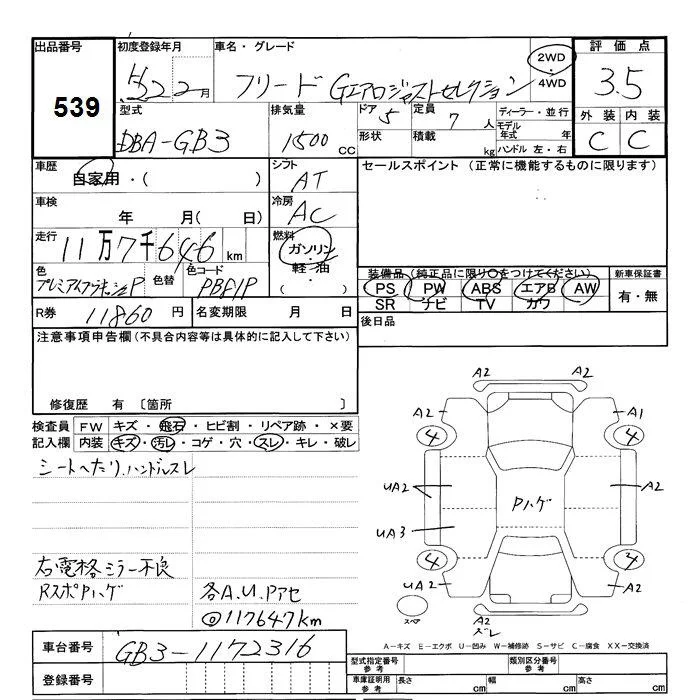 出品番号
539
初度登録年月
H22 2月
車名・グレード
フリード Gエアロジャストセレクション
2WD
4WD
評価点
3.5
外装 内装
C C
型式
DBA-GB3
排気量
1500 CC
ドア 5
形状
定員 7 人
積載 kg
ディーラー・並行
モデル年式 年
ハンドル 左・右
車歴
自家用・( )
シフト
AT
セールスポイント (正常に機能するものに限ります)
車検
年 月( 日)
冷房
AC
走行
11万7千646km
燃料
ガソリン
軽・油
( )
色
色替
色コード
PBF1P
装備品(純正品に限り○をつけてください)
PS PW ABS エアB AW
SR ナビ TV カワ
新車保証書
有・無
R券 11860 円
名変期限 月 日
後日品
注意事項申告欄(不具合内容等は具体的に記入して下さい)
修復歴 有 〔箇所 〕
検査員記入欄
FW キズ・飛石・ヒビ割・リペア跡・×要
内装 キズ・汚レ・コゲ・穴・スレ・キレ・破レ
シートへたり、ハンドルスレ
右電格ミラー不良
RスポPハゲ
各A.U.Pアセ
@117647km
A2 A2
A2 A1
4 4
UA2 A2
Pハゲ
UA3
4 4
UA2 A2
スペア
A2
ズレ
A-キズ E-エクボ U-凹み W-補修跡 S-サビ C-腐食 XX-交換済
車台番号
GB3-1172316
登録番号
型式指定番号 参考
類別区分番号 参考
車庫証明用 参考
長さ cm 幅 cm 高さ cm